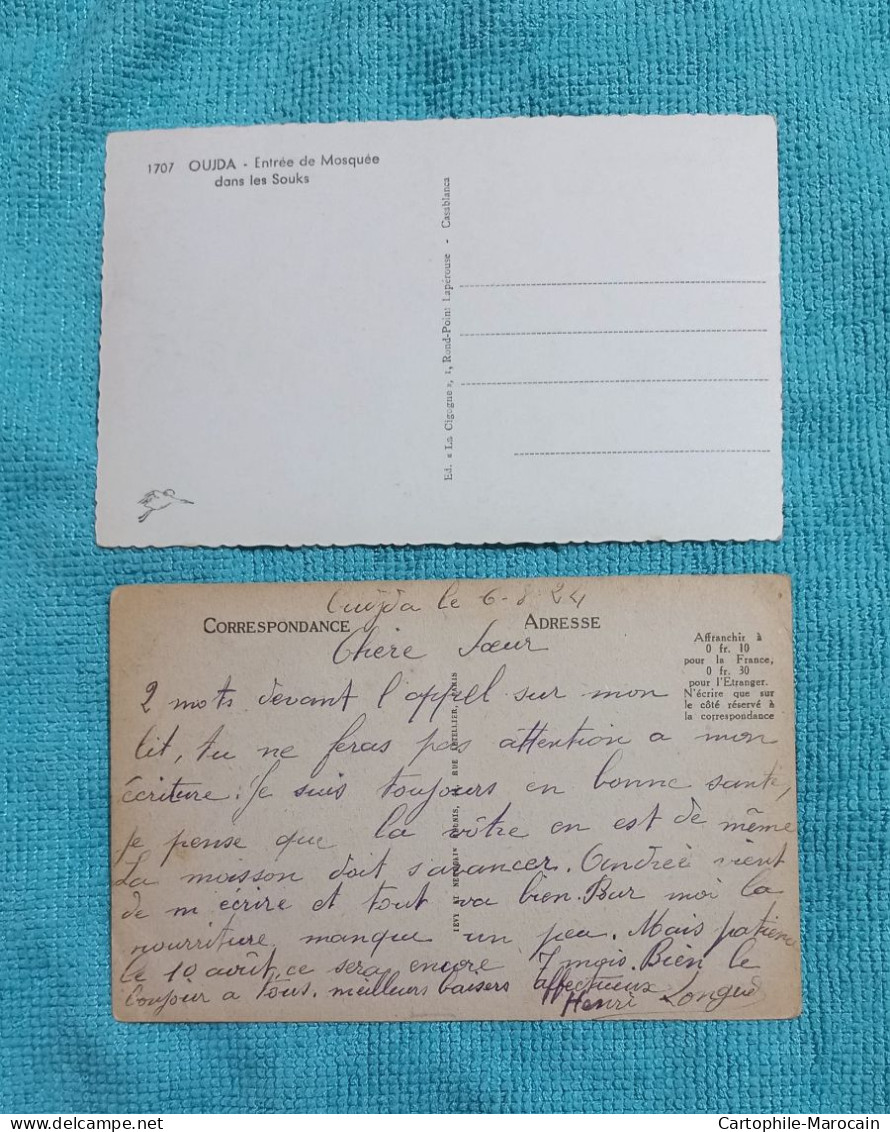 1707 OUJDA - Entrée de Mosquée
dans les Souks
Ed. « La Cigogne », 1, Rond-Point Lapérouse - Casablanca
Oujda le 6-8 24
CORRESPONDANCE
ADRESSE
Affranchir à
0 fr. 10
pour la France,
0 fr. 30
pour l'Etranger.
N'écrire que sur
le côté réservé à
la correspondance
Chère Sœur
2 mots devant l'appel sur mon
lit, tu ne feras pas attention a mon
écriture. Je suis toujours en bonne santé,
je pense que la vôtre en est de même
La moisson doit s'avancer. Andrée vient
de m'écrire et tout va bien. Pour moi la
nourriture manque un peu. Mais patience
le 10 août, ce sera encore 7 mois. Bien le
bonjour a tous. meilleurs baisers affectueux
Henri Longué
LEVY ET NEURDEIN REUNIS, RUE LETELLIER, PARIS
Cartophile-Marocain